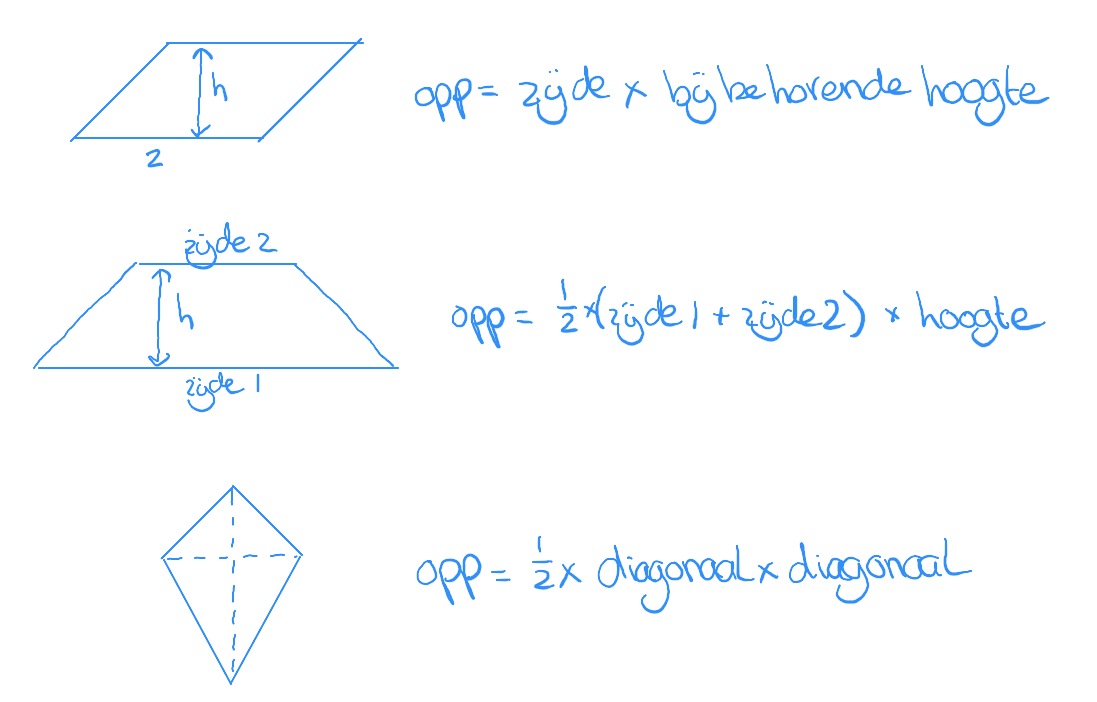 h
opp = zijde x bijbehorende hoogte
z
zijde 2
h
opp = 1/2 x (zijde 1 + zijde 2) x hoogte
zijde 1
opp = 1/2 x diagonaal x diagonaal